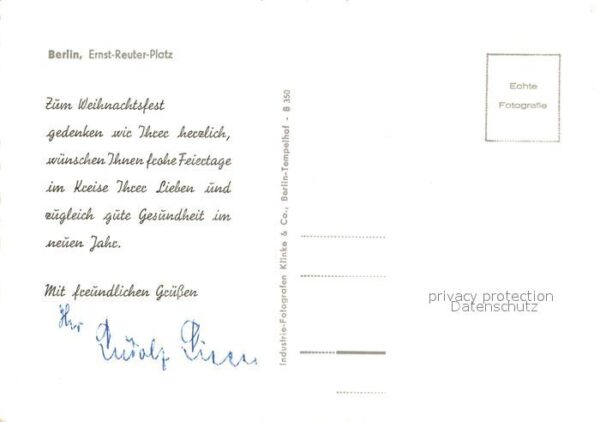 Berlin, Ernst-Reuter-Platz
Echte
Fotografie
Zum Weihnachtsfest
gedenken wir Ihrer herzlich,
wünschen Ihnen frohe Feiertage
im Kreise Ihrer Lieben und
zugleich gute Gesundheit im
neuen Jahr.
Mit freundlichen Grüßen
Ihr
Rudolf
Industrie-Fotografen Klinke & Co., Berlin-Tempelhof - B 350
privacy protection
Datenschutz